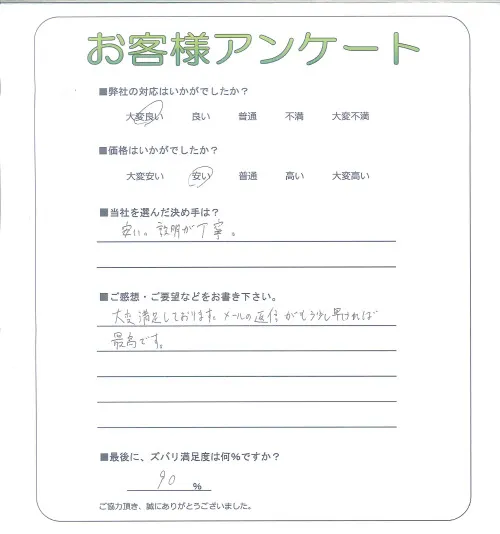 お客様アンケート
■弊社の対応はいかがでしたか？
大変良い 良い 普通 不満 大変不満
■価格はいかがでしたか？
大変安い 安い 普通 高い 大変高い
■当社を選んだ決め手は？
安い。説明が丁寧。
■ご感想・ご要望などをお書き下さい。
大変満足しております。メールの返信がもう少し早ければ
最高です。
■最後に、ズバリ満足度は何％ですか？
90 ％
ご協力頂き、誠にありがとうございました。